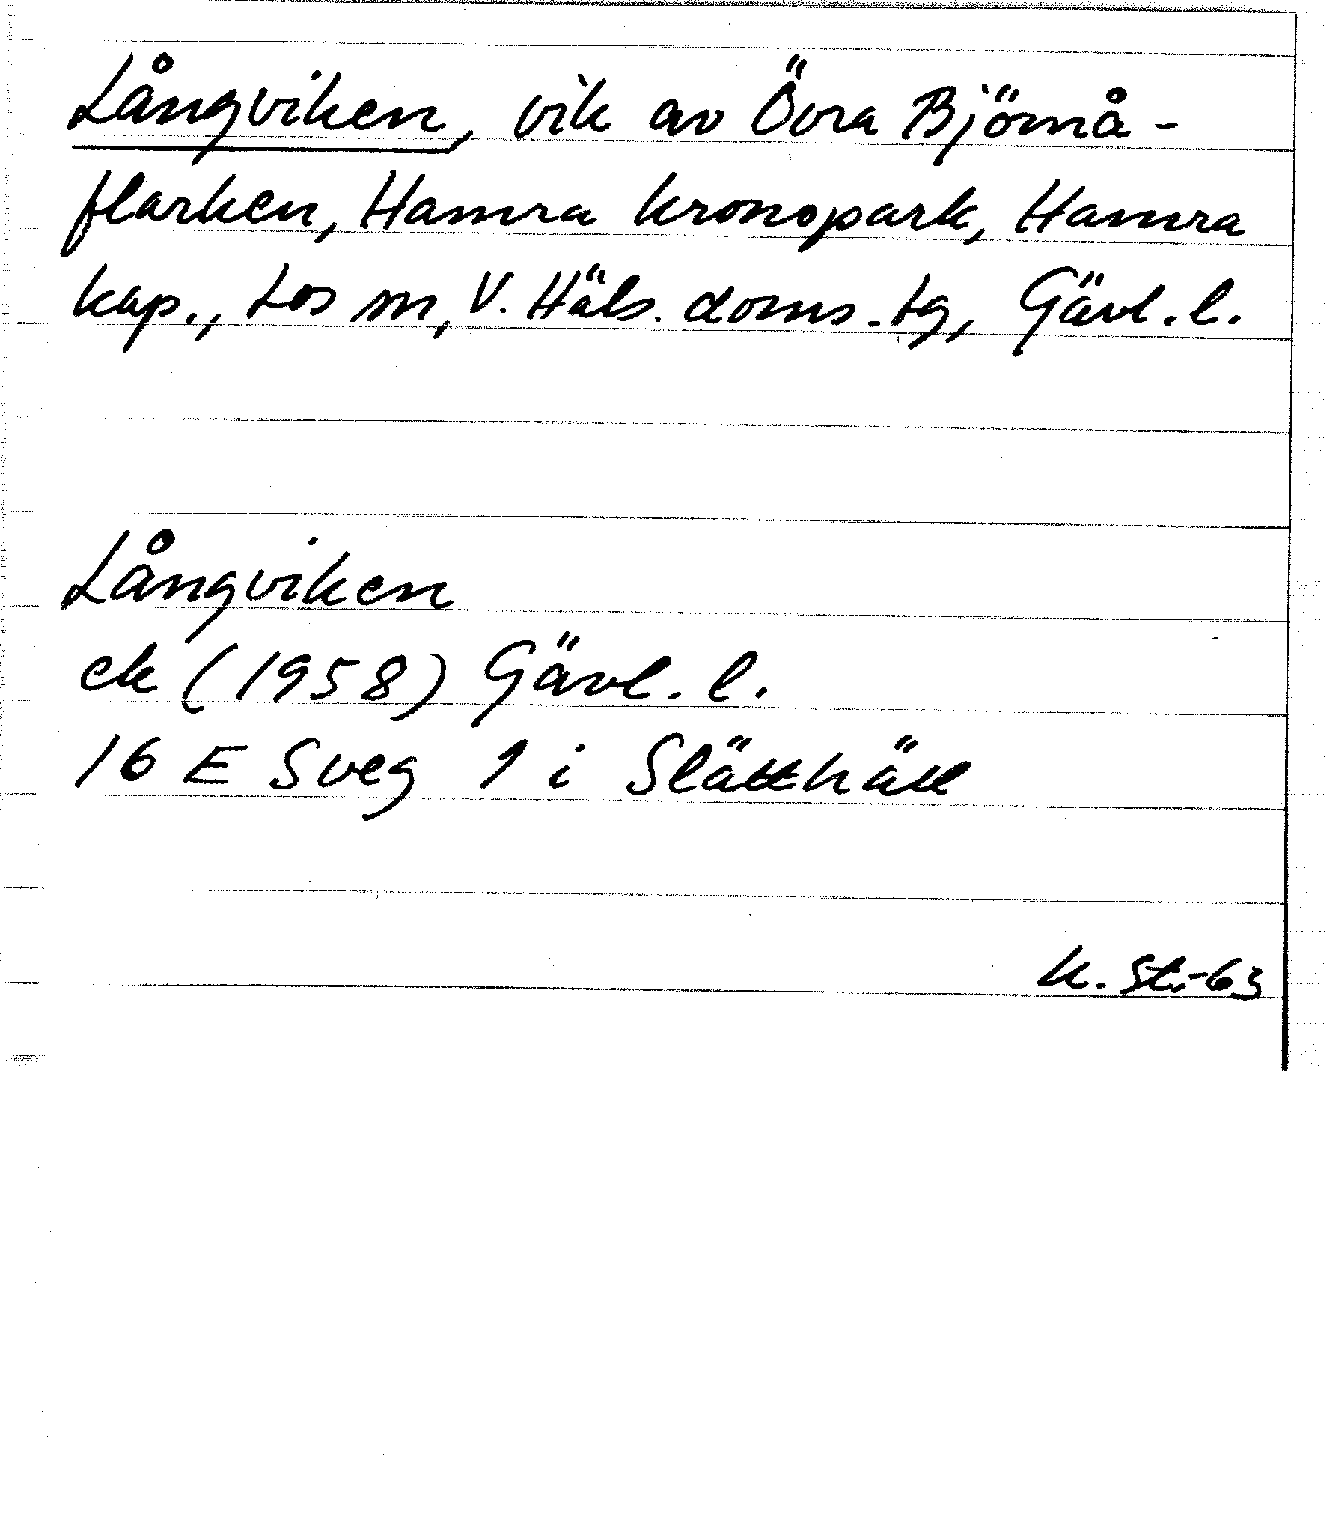 Långviken, vik av Övra Björnå-
flarken, Hamra kronopark, Hamra
kap., Los sn, V. Häls. doms.tg, Gävl. l.
Långviken
ek (1958) Gävl. l.
16 E Sveg 1 i Slätthätt
K. St.-63